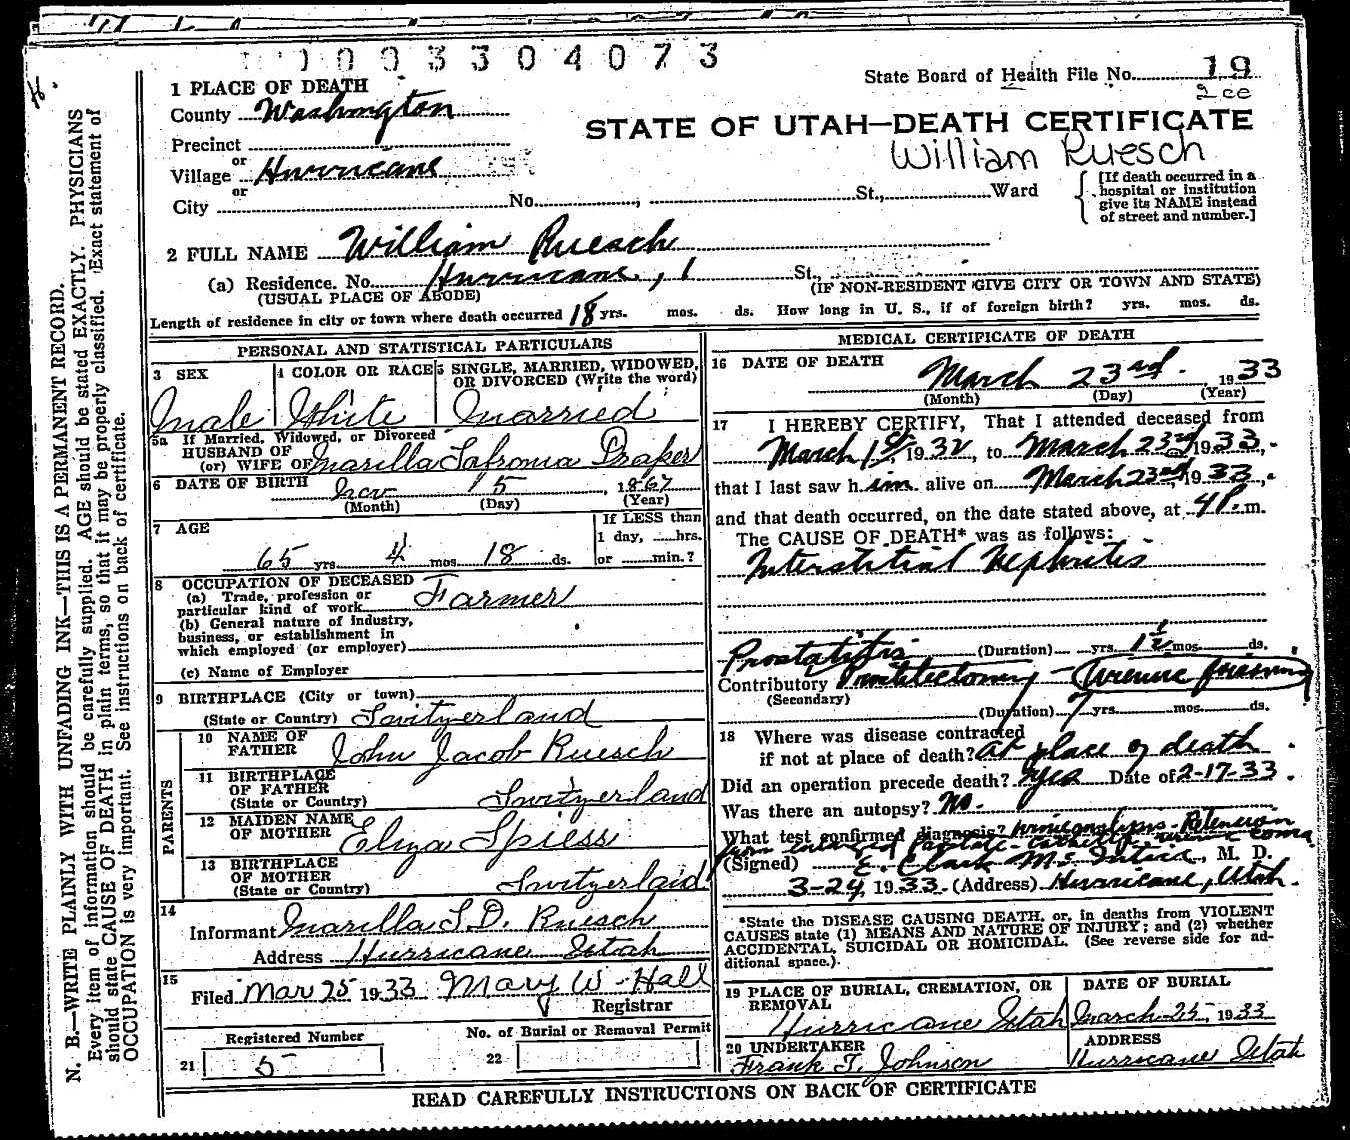 0 0 3 3 0 4 0 7 3
State Board of Health File No. 19
1 PLACE OF DEATH
County Washington
STATE OF UTAH—DEATH CERTIFICATE
William Ruesch
Precinct
or
Village Hurricane
or
City No. , St., Ward
[If death occurred in a
hospital or institution
give its NAME instead
of street and number.]
2 FULL NAME William Ruesch
(a) Residence. No. Hurricane, St.,
(USUAL PLACE OF ABODE) (IF NON-RESIDENT GIVE CITY OR TOWN AND STATE)
Length of residence in city or town where death occurred 18 yrs. mos. ds. How long in U. S., if of foreign birth? yrs. mos. ds.
PERSONAL AND STATISTICAL PARTICULARS
3 SEX 4 COLOR OR RACE 5 SINGLE, MARRIED, WIDOWED,
OR DIVORCED (Write the word)
Male White Married
5a If Married, Widowed, or Divorced
HUSBAND OF
(or) WIFE OF Marilla Draper
6 DATE OF BIRTH Nov 5, 1867
(Month) (Day) (Year)
7 AGE If LESS than
1 day, hrs.
65 yrs 4 mos 18 ds. or min.?
8 OCCUPATION OF DECEASED
(a) Trade, profession or
particular kind of work Farmer
(b) General nature of industry,
business, or establishment in
which employed (or employer)
(c) Name of Employer
9 BIRTHPLACE (City or town)
(State or Country) Switzerland
PARENTS
10 NAME OF
FATHER John Jacob Ruesch
11 BIRTHPLACE
OF FATHER
(State or Country) Switzerland
12 MAIDEN NAME
OF MOTHER Eliza Spiess
13 BIRTHPLACE
OF MOTHER
(State or Country) Switzerland
14
Informant Marilla L. D. Ruesch
Address Hurricane Utah
15
Filed Mar 25 1933 Mary W. Hall
Registrar
Registered Number No. of Burial or Removal Permit
21 5 22
MEDICAL CERTIFICATE OF DEATH
16 DATE OF DEATH
March 23rd. 1933
(Month) (Day) (Year)
17 I HEREBY CERTIFY, That I attended deceased from
March 1st 1932, to March 23rd 1933,
that I last saw h im alive on March 23rd, 1933,
and that death occurred, on the date stated above, at 4 P. m.
The CAUSE OF DEATH* was as follows:
Interstitial Nephritis
(Duration) yrs. mos. ds.
Prostatitis
Contributory
(Secondary)
(Duration) 7 yrs. mos. ds.
18 Where was disease contracted
if not at place of death? At place of death
Did an operation precede death? Yes Date of 2-17-33.
Was there an autopsy? No.
What test confirmed diagnosis?
(Signed) E. Clark McIntire, M. D.
3-24, 1933. (Address) Hurricane, Utah.
*State the DISEASE CAUSING DEATH, or, in deaths from VIOLENT
CAUSES state (1) MEANS AND NATURE OF INJURY; and (2) whether
ACCIDENTAL, SUICIDAL OR HOMICIDAL. (See reverse side for ad-
ditional space.)
19 PLACE OF BURIAL, CREMATION, OR
REMOVAL
Hurricane Utah
DATE OF BURIAL
March 25, 1933
20 UNDERTAKER
Frank T. Johnson
ADDRESS
Hurricane Utah
READ CAREFULLY INSTRUCTIONS ON BACK OF CERTIFICATE
N. B.—WRITE PLAINLY WITH UNFADING INK—THIS IS A PERMANENT RECORD.
Every item of information should be carefully supplied. AGE should be stated EXACTLY. PHYSICIANS
should state CAUSE OF DEATH in plain terms, so that it may be properly classified. Exact statement of
OCCUPATION is very important. See instructions on back of certificate.